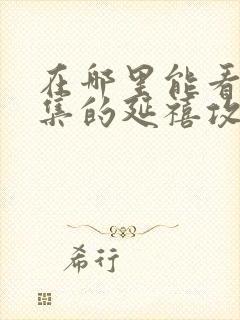 在哪里能看
集的延禧攻
希行